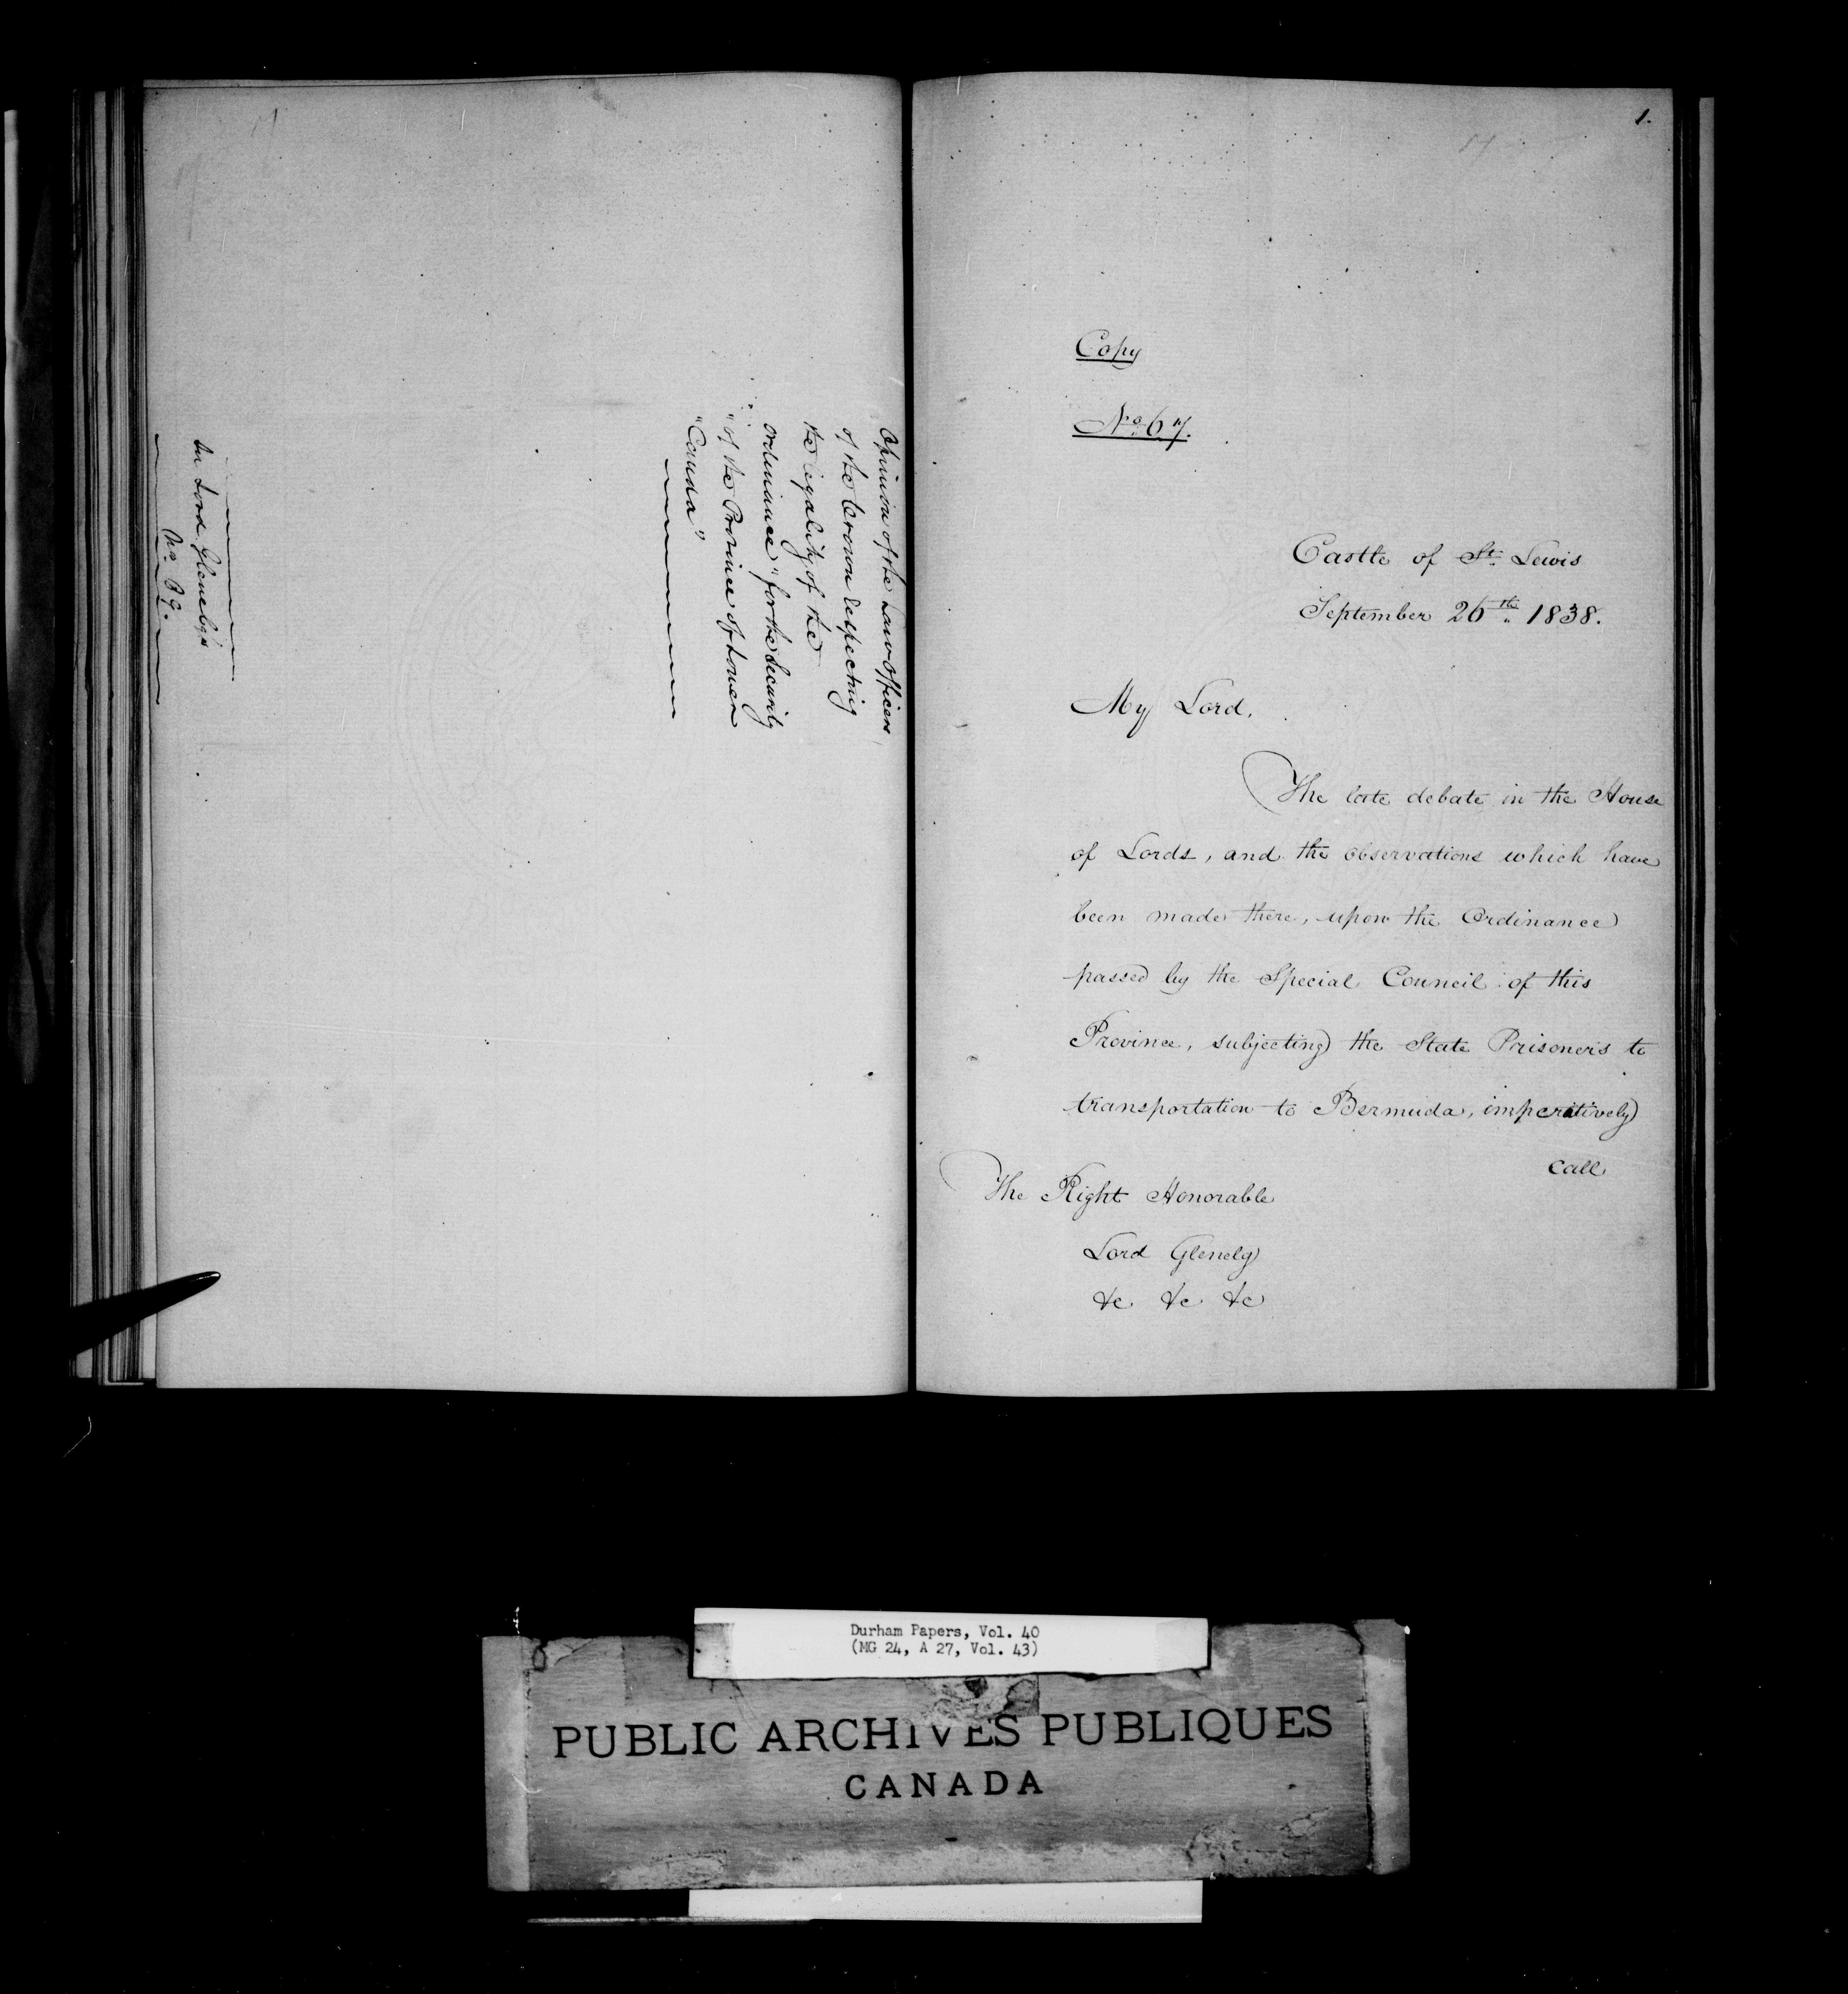 Opinion of the Law Officers
of the Crown respecting
the legality of the
ordinance "for the Security
"of the Province of Lower
"Canada"
In Lord Glenelg's
No. 89.
1.
Copy
No. 67.
Castle of St. Lewis
September 26th 1838.
My Lord,
The late debate in the House
of Lords, and the observations which have
been made there, upon the Ordinance
passed by the Special Council of this
Province, subjecting the State Prisoners to
transportation to Bermuda, imperatively
call
The Right Honorable
Lord Glenelg
&c &c &c
Durham Papers, Vol. 40
(MG 24, A 27, Vol. 43)
PUBLIC ARCHIVES PUBLIQUES
CANADA